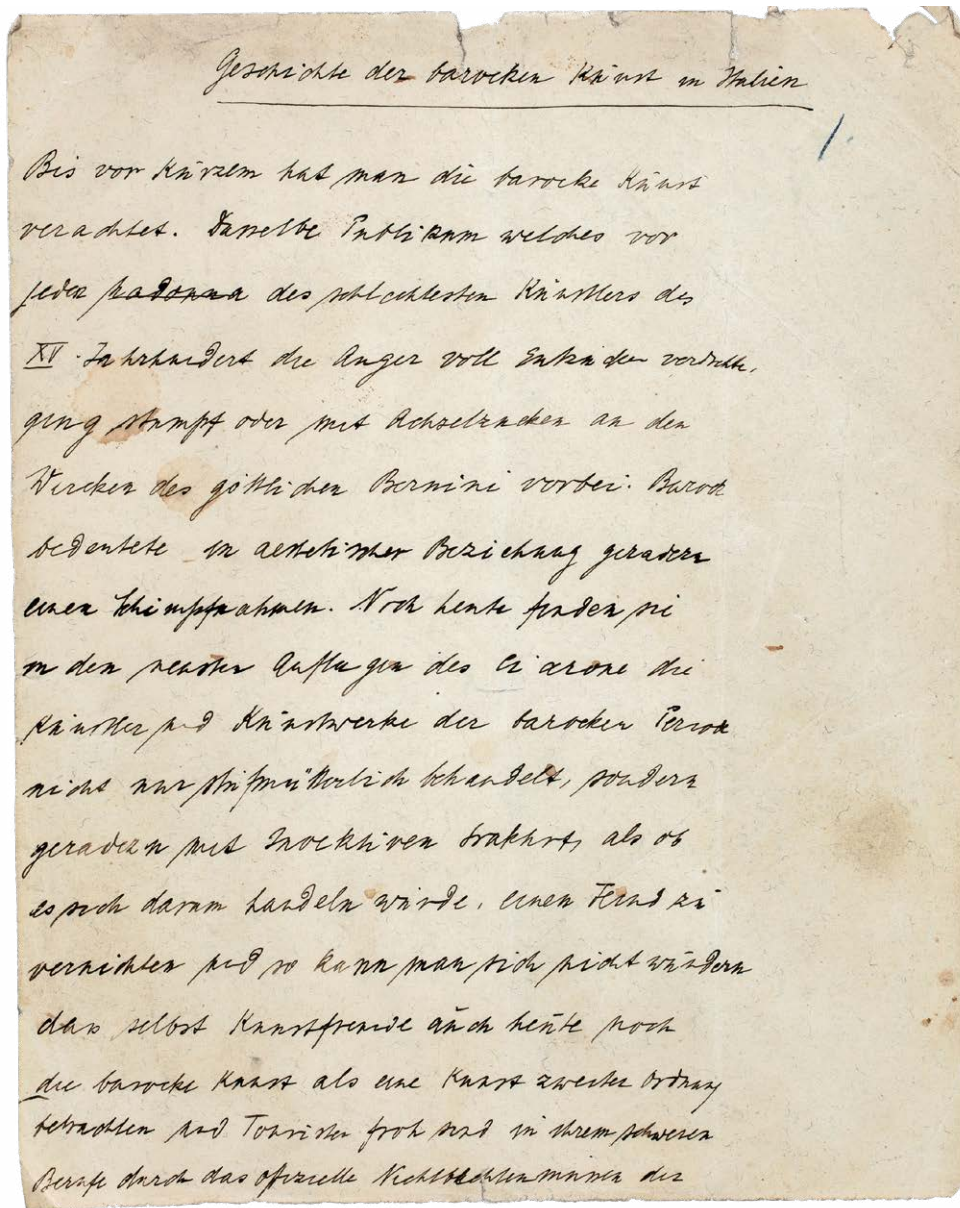 Geschichte der barocken Kunst in Italien
1.
Bis vor Kurzem hat man die barocke Kunst
verachtet. Dasselbe Publikum welches vor
jeder Madonna des schlechtesten Künstlers des
XV. Jahrhundert die Augen voll Entzücken verdrehte,
ging stumpf oder mit Achselzucken an den
Wercken des göttlichen Bernini vorbei. Barock
bedeutete in aestetischer Beziehung geradezu
einen Schimpfnahmen. Noch heute finden sie
in den neusten Auflagen des Cicerone die
Künstler und Kunstwerke der barocken Period
nicht nur stifmütterlich behandelt, sondern
geradezu mit Invektiven traktirt, als ob
es sich darum handeln würde, einen Feind zu
vernichten und so kann man sich nicht wundern
dass selbst Kunstfreunde auch heute noch
die barocke Kunst als eine Kunst zweiter Ordnung
betrachten und Touristen froh sind in ihrem schweren
Berufe durch das ofizielle Nichtbeachtenmüssen der